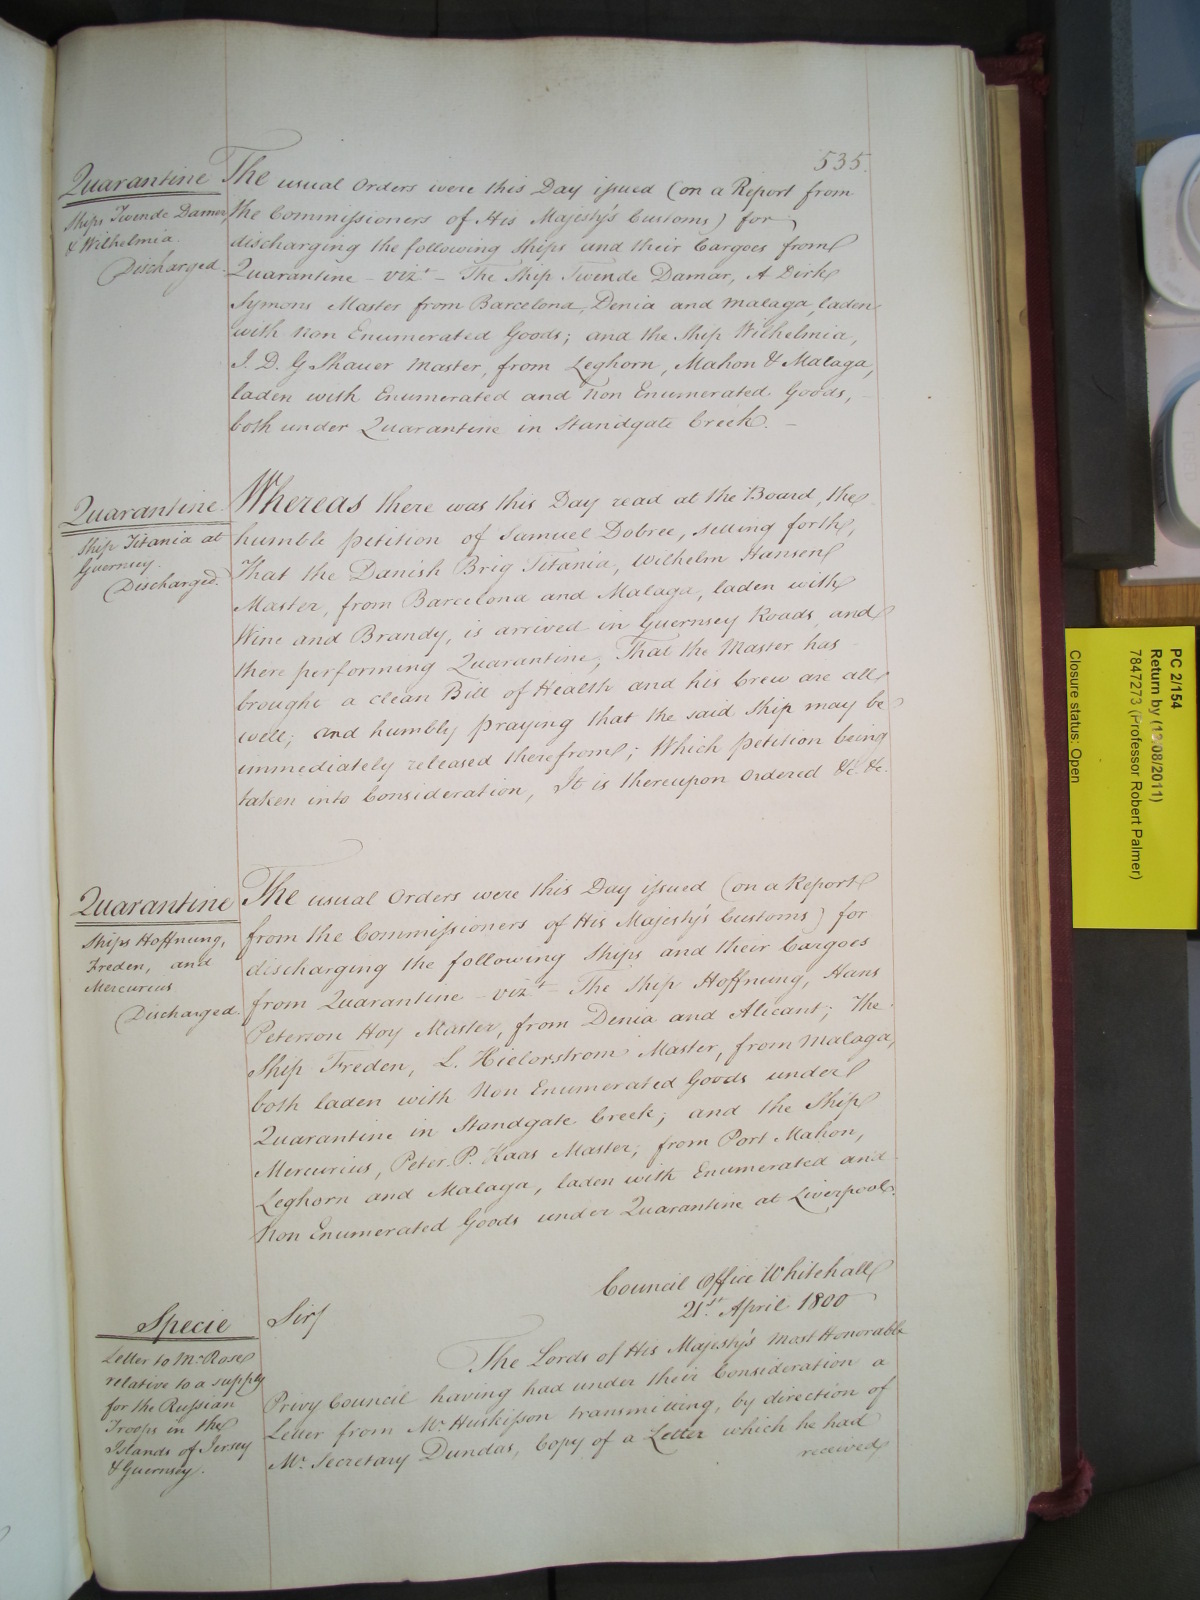 535.
Quarantine
Ships Twende Damar,
& Wilhelmia.
Discharged.
The usual Orders were this Day issued (on a Report from
the Commissioners of His Majesty's Customs) for
discharging the following Ships and their Cargoes from
Quarantine – vizt – The Ship Twende Damar, A Dirk
Symons Master from Barcelona, Denia and Malaga, laden
with Non Enumerated Goods; and the Ship Wilhelmia,
J. D. G Shauer Master, from Leghorn, Mahon & Malaga,
laden with Enumerated and Non Enumerated Goods, –
both under Quarantine in Standgate Creek. –
Quarantine
Ship Titania at
Guernsey.
Discharged.
Whereas there was this Day read at the Board, the
humble petition of Samuel Dobree, setting forth,
That the Danish Brig Titania, Wilhelm Hansen
Master, from Barcelona and Malaga, laden with
Wine and Brandy, is arrived in Guernsey Roads, and
there performing Quarantine, That the Master has
brought a clean Bill of Health and his Crew are all
well; and humbly praying that the said Ship may be
immediately released therefrom; Which petition being
taken into Consideration, It is thereupon Ordered &c. &c.
Quarantine
Ships Hoffnung,
Freden, and
Mercurius
Discharged.
The usual Orders were this Day issued (on a Report
from the Commissioners of His Majesty's Customs) for
discharging the following Ships and their Cargoes
from Quarantine – vizt – The Ship Hoffnung, Hans
Peterson Hoy Master, from Denia and Alicant; The
Ship Freden, L. Hielorstrom Master, from Malaga,
both laden with Non Enumerated Goods under
Quarantine in Standgate Creek; and the Ship
Mercurius, Peter P. Kaas Master, from Port Mahon,
Leghorn and Malaga, laden with Enumerated and
Non Enumerated Goods under Quarantine at Liverpool.
Council Office Whitehall
21st. April 1800
Specie
Letter to Mr. Rose
relative to a supply
for the Russian
Troops in the
Islands of Jersey
& Guernsey.
Sir,
The Lords of His Majesty's most Honorable
Privy Council having had under their Consideration a
Letter from Mr. Huskisson transmitting, by direction of
Mr. Secretary Dundas, Copy of a Letter which he had
received
PC 2/154
Return by (12/08/2011)
7847273 (Professor Robert Palmer)
Closure status: Open